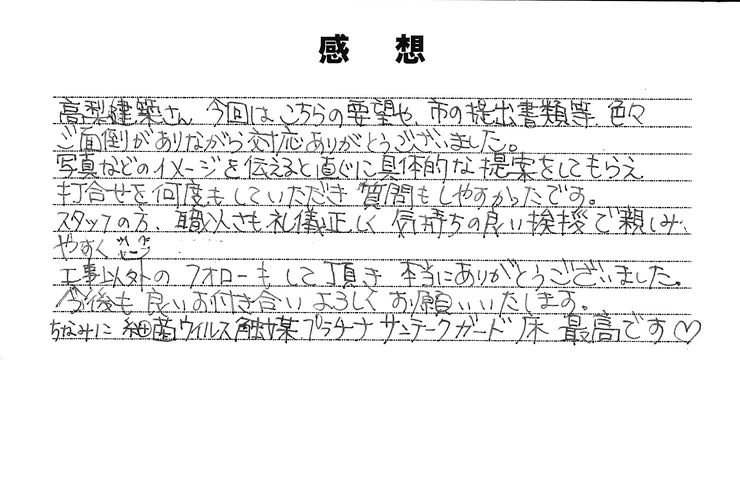 感 想
高梨建築さん 今回は こちらの要望や、市の提出書類等、色々
ご面倒がありながら対応ありがとうございました。
写真などのイメージを伝えると直ぐに具体的な提案をしてもらえ
打合せを何度もしていただき 質問もしやすかったです。
スタッフの方、職人さも礼儀正しく 気持ちの良い挨拶で親しみ
やすく
工事以外の フォローもして頂き 本当にありがとうございました。
今後も良いお付き合い よろしくお願いいたします。
ちなみに 細菌ウイルス触媒 プラチナ サンテークガード 床 最高です♡